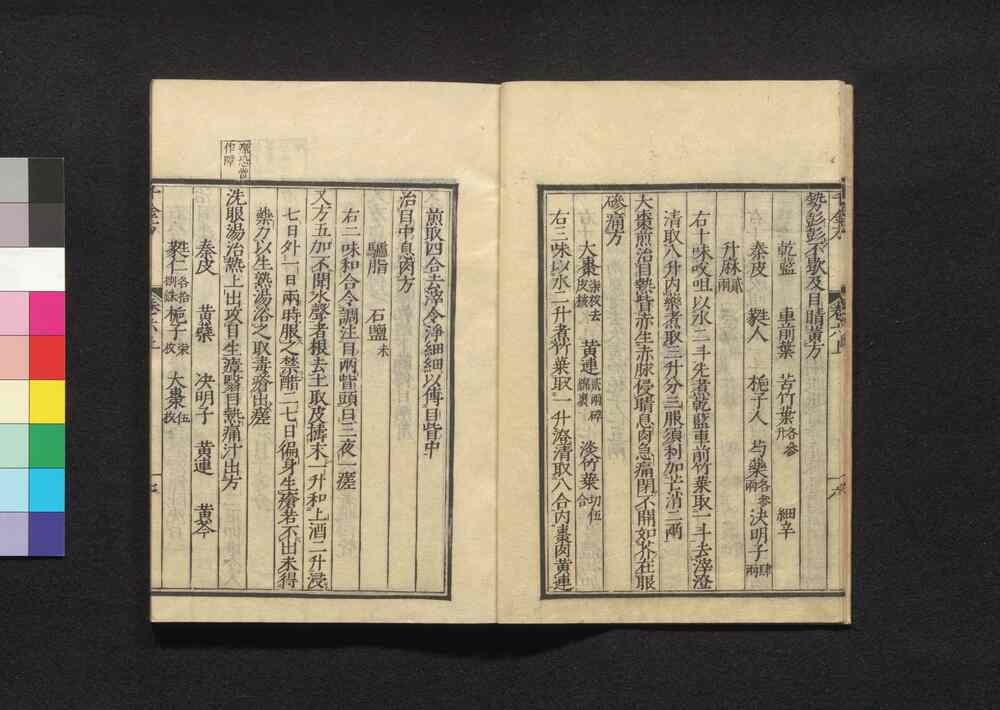 勞彭彭不歇及目睛黃方
乾藍 車前葉 苦竹葉各參升 細辛
秦皮 蕤人 梔子人 芍藥各參兩 決明子肆兩
升麻貳兩
右十味㕮咀以水二斗先煮乾藍車前竹葉取一斗去滓澄
清取八升內藥煮取三升分三服須利加芒消二兩
大棗煎治目熱眥赤生赤脉侵睛息肉急痛閉不開如芥在眼
磣痛方
大棗柒枚去皮核 黃連貳兩碎綿裹 淡竹葉切伍合
右三味以水二升煮竹葉取一升澄清取八合內棗肉黃連
煎取四合去滓令淨細細以傅目眥中
治目中息肉方
驢脂 石鹽末
右二味和合令調注目兩眥頭日三夜一瘥
又方五加不聞水聲者根去土取皮擣末一升和上酒二升浸
七日外一日兩時服之禁醋二七日徧身生瘡若不出未得
藥力以生熟湯浴之取毒瘡出瘥
洗眼湯治熱上出攻目生瘴翳目熱痛汁出方
秦皮 黃蘗 決明子 黃連 黃芩
蕤仁各拾捌銖 梔子柒枚 大棗伍枚